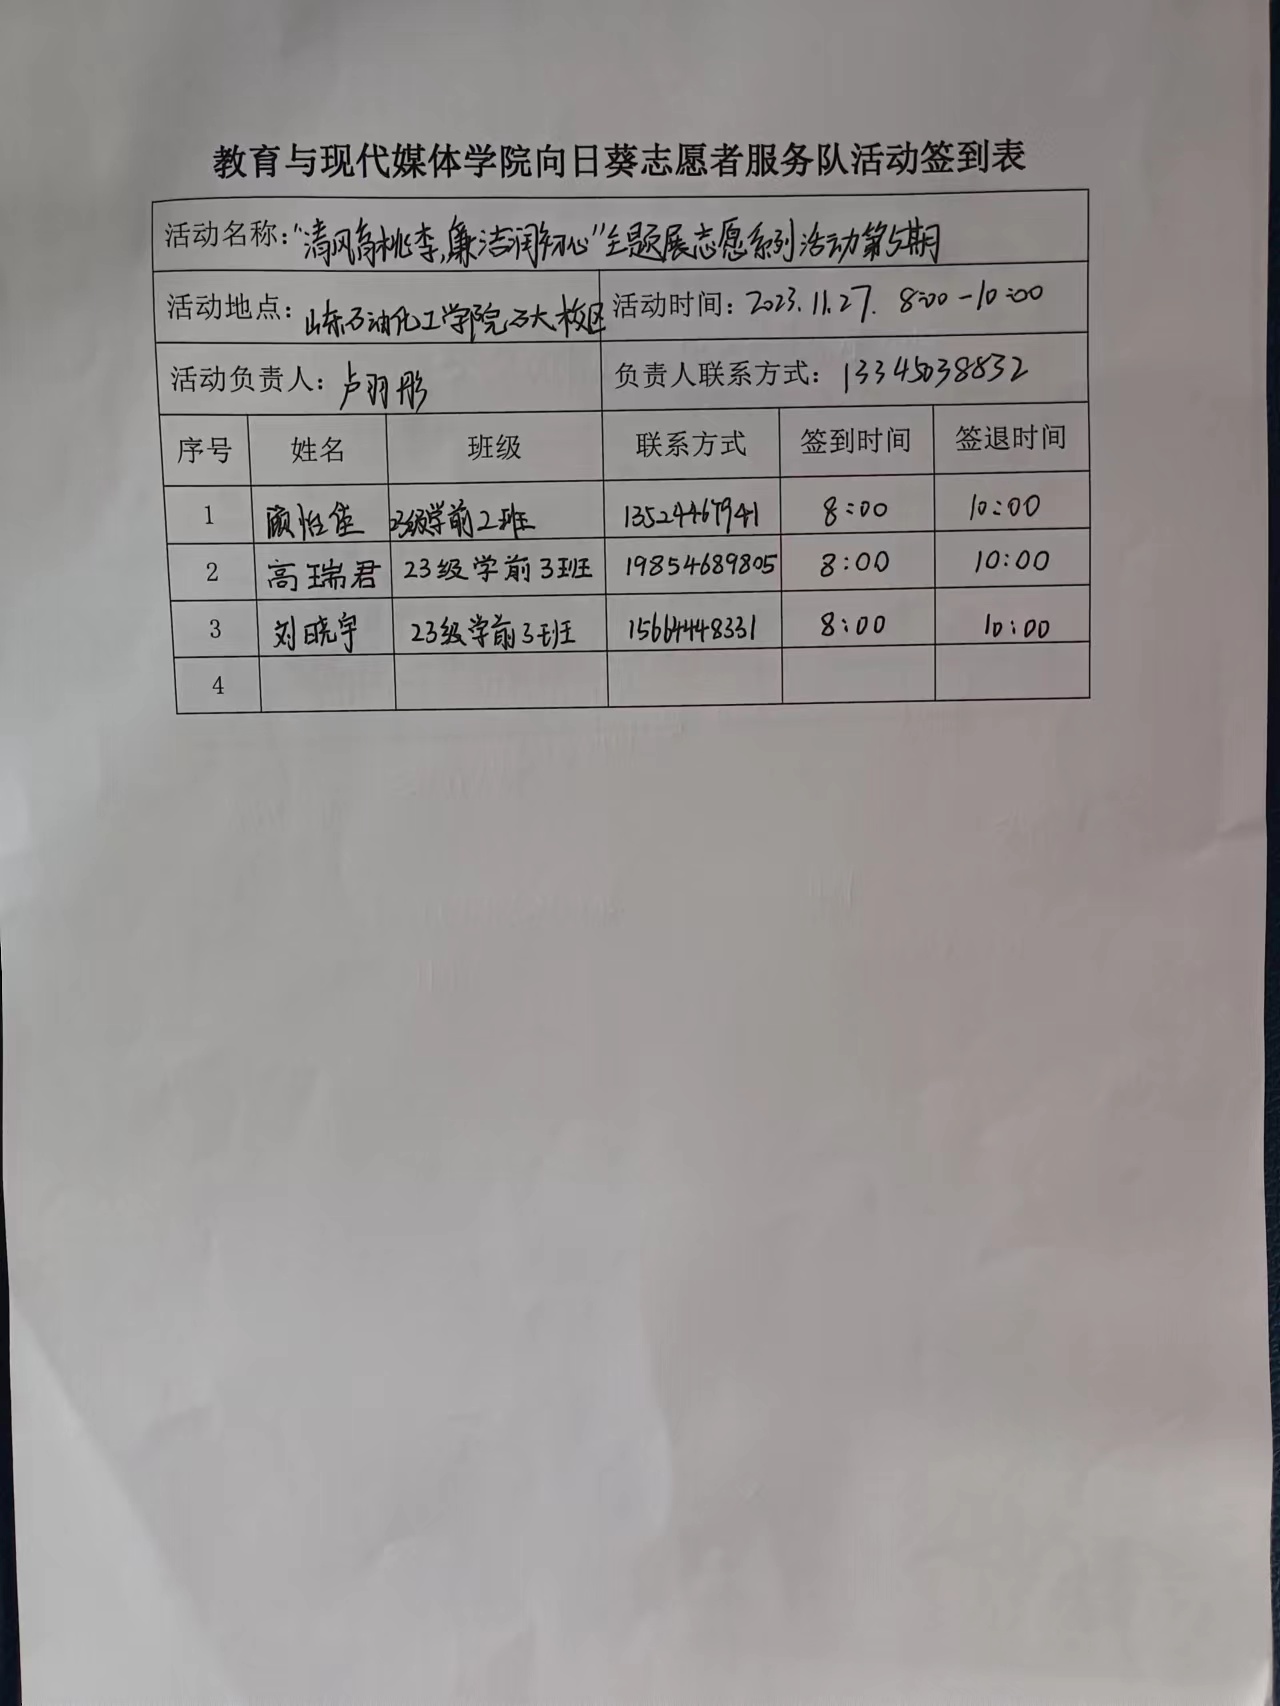 教育与现代媒体学院向日葵志愿者服务队活动签到表
活动名称："清风育桃李，廉洁润初心"主题展志愿系列活动第5期
活动地点：山东石油化工学院石大校区 活动时间：2023.11.27. 8:00-10:00
活动负责人：卢羽彤 负责人联系方式：13345038832
序号 姓名 班级 联系方式 签到时间 签退时间
1 顾怡佳 23级学前2班 13524467941 8:00 10:00
2 高瑞君 23级学前3班 19854689805 8:00 10:00
3 刘晓宇 23级学前3班 15664448331 8:00 10:00
4